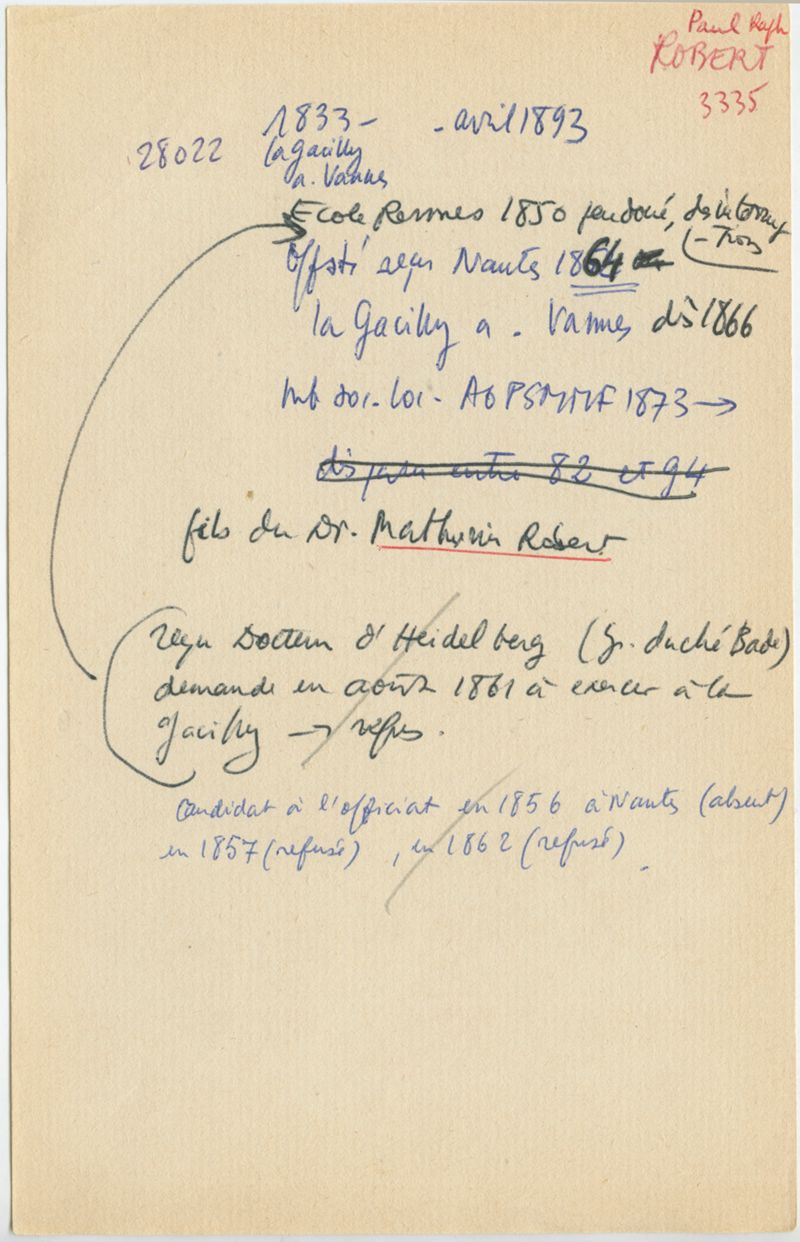 Paul Raph
ROBERT
3335
1833 - - avril 1893
28022 la Gacilly
a. Vannes
Ecole Rennes 1850 peu doué,
Offsté reçu Nantes 1864
la Gacilly a. Vannes dès 1866
mb soc. loc. AGPSMMF 1873 →
disparu entre 82 et 94
fils du Dr. Mathurin Robert
reçu Docteur d'Heidelberg (Gr. duché Bade)
demande en août 1861 à exercer à la
Gacilly → refus.
candidat à l'officiat en 1856 à Nantes (absent)
en 1857 (refusé), en 1862 (refusé).